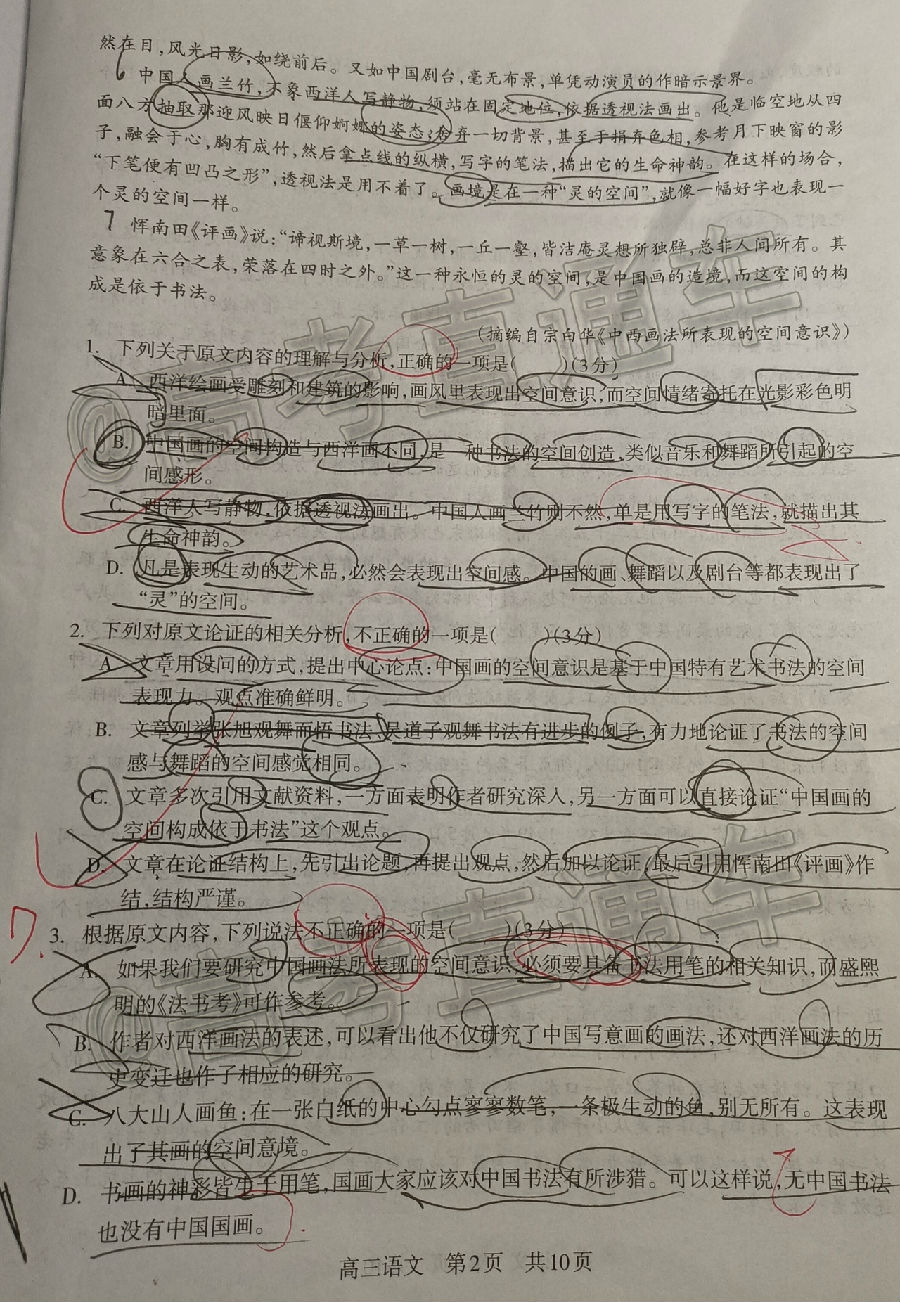 然在目，风光日影，如绕前后。又如中国剧台，毫无布景，单凭动演员的作暗示景界。
6 中国人画兰竹，不象西洋人写静物，须站在固定地位，依据透视法画出。他是临空地从四
面八方抽取那迎风映日偃仰婀娜的姿态，舍弃一切背景，甚至于捐弃色相，参考月下映窗的影
子，融会于心，胸有成竹，然后拿点线的纵横，写字的笔法，描出它的生命神韵。在这样的场合，
“下笔便有凹凸之形”，透视法是用不着了。画境是在一种“灵的空间”，就像一幅好字也表现一
个灵的空间一样。
7 恽南田《评画》说：“谛视斯境，一草一树，一丘一壑，皆洁庵灵想所独辟，总非人间所有。其
意象在六合之表，荣落在四时之外。”这一种永恒的灵的空间，是中国画的造境，而这空间的构
成是依于书法。
（摘编自宗白华《中西画法所表现的空间意识》）
1. 下列关于原文内容的理解与分析，正确的一项是( )(3分)
A. 西洋绘画受雕刻和建筑的影响，画风里表现出空间意识，而空间情绪寄托在光影彩色明
暗里面。
B. 中国画的空间构造与西洋画不同，是一种书法的空间创造，类似音乐和舞蹈所引起的空
间感形。
C. 西洋人写静物，依据透视法画出。中国人画兰竹则不然，单是用写字的笔法，就描出其
生命神韵。
D. 凡是表现生动的艺术品，必然会表现出空间感。中国的画、舞蹈以及剧台等都表现出了
“灵”的空间。
2. 下列对原文论证的相关分析，不正确的一项是( )(3分)
A. 文章用设问的方式，提出中心论点：中国画的空间意识是基于中国特有艺术书法的空间
表现力。观点准确鲜明。
B. 文章列举张旭观舞而悟书法、吴道子观舞书法有进步的例子，有力地论证了书法的空间
感与舞蹈的空间感觉相同。
C. 文章多次引用文献资料，一方面表明作者研究深入，另一方面可以直接论证“中国画的
空间构成依于书法”这个观点。
D. 文章在论证结构上，先引出论题，再提出观点，然后加以论证，最后引用恽南田《评画》作
结，结构严谨。
3. 根据原文内容，下列说法不正确的一项是( )(3分)
A. 如果我们要研究中国画法所表现的空间意识，必须要具备书法用笔的相关知识，而盛熙
明的《法书考》可作参考。
B. 作者对西洋画法的表述，可以看出他不仅研究了中国写意画的画法，还对西洋画法的历
史变迁也作了相应的研究。
C. 八大山人画鱼：在一张白纸的中心勾点寥寥数笔，一条极生动的鱼，别无所有。这表现
出了其画的空间意境。
D. 书画的神彩皆生于用笔，国画大家应该对中国书法有所涉猎。可以这样说，无中国书法
也没有中国国画。
高三语文 第2页 共10页
@高考直通车
@高考直通车